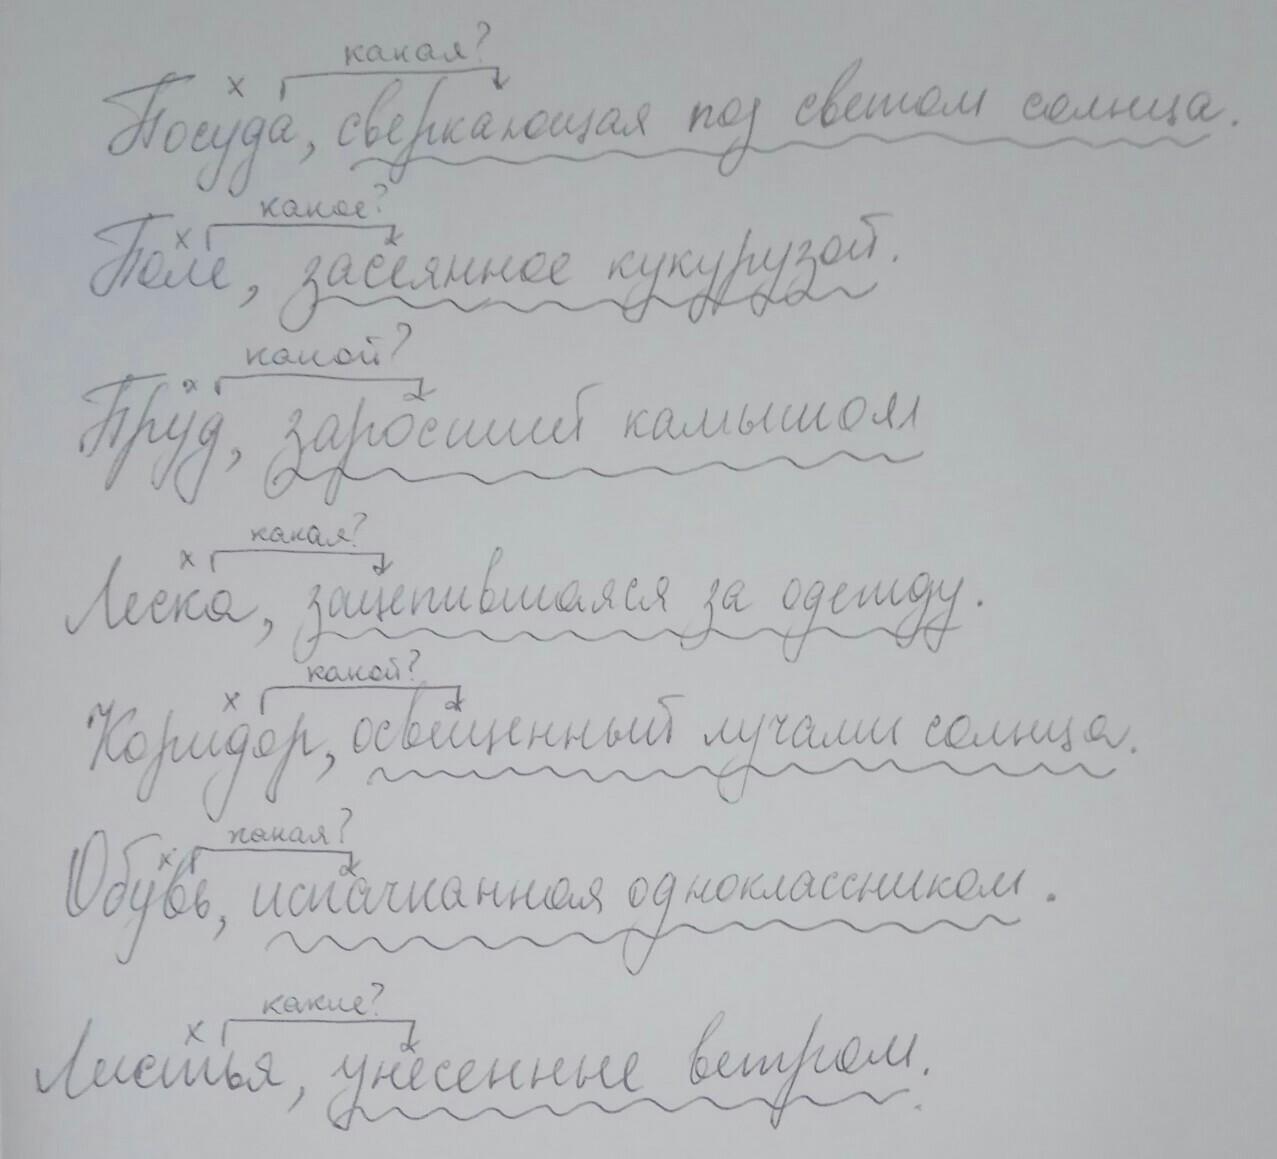 какая?
Посуда, сверкающая под светом солнца.
какое?
Поле, засеянное кукурузой.
какой?
Пруд, заросший камышом
какая?
Леска, зацепившаяся за одежду.
какой?
Коридор, освещенный лучами солнца.
какая?
Обувь, испачканная одноклассником.
какие?
Листья, унесенные ветром.